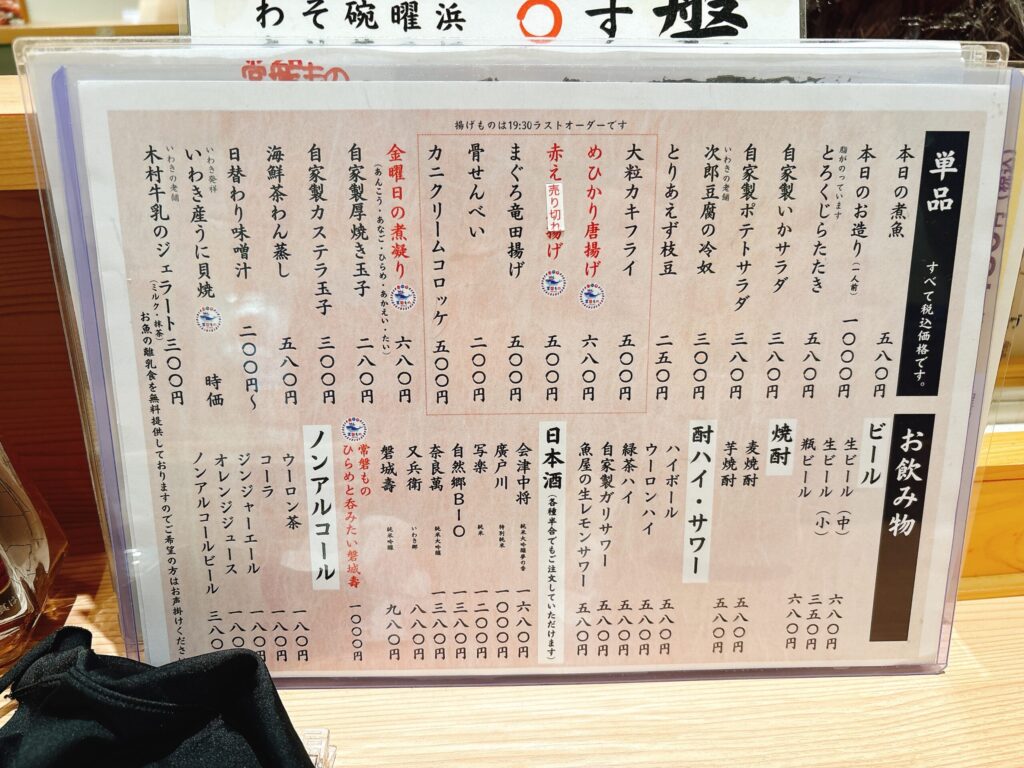 浜
曜
碗
そ
わ
す
盤
常磐もの
単品 すべて税込価格です。
本日の煮魚 五八〇円
本日のお造り(一人前) 一〇〇〇円
脂がのっています
とろくじらたたき 五八〇円
自家製いかサラダ 三八〇円
自家製ポテトサラダ 三八〇円
いわきの老舗
次郎豆腐の冷奴 三〇〇円
とりあえず枝豆 二五〇円
揚げものは19:30ラストオーダーです
大粒カキフライ 五〇〇円
めひかり唐揚げ 六八〇円
赤え 売り切れ 揚げ 五〇〇円
まぐろ竜田揚げ 五〇〇円
骨せんべい 二〇〇円
カニクリームコロッケ 五〇〇円
金曜日の煮凝り 六八〇円
(あんこう・あなご・ひらめ・あかえい・たい)
自家製厚焼き玉子 二八〇円
自家製カステラ玉子 三〇〇円
海鮮茶わん蒸し 五八〇円
日替わり味噌汁 二〇〇円〜
いわき発祥
いわき産うに貝焼 時価
いわきの老舗
木村牛乳のジェラート 三〇〇円
(ミルク・抹茶)
お魚の離乳食を無料提供しておりますのでご希望の方はお声掛けくださ
お飲み物
ビール
生ビール(中) 六八〇円
生ビール(小) 三五〇円
瓶ビール 六八〇円
焼酎
麦焼酎 五八〇円
芋焼酎 五八〇円
酎ハイ・サワー
ハイボール 五八〇円
ウーロンハイ 五八〇円
緑茶ハイ 五八〇円
自家製ガリサワー 五八〇円
魚屋の生レモンサワー 五八〇円
日本酒(各種半合でもご注文していただけます)
会津中将 純米大吟醸夢の香 一六八〇円
廣戸川 特別純米 一〇〇〇円
写楽 純米 一二〇〇円
自然郷BIO 一三八〇円
奈良萬 純米大吟醸 一三八〇円
又兵衛 いわき郷 八八〇円
磐城壽 純米吟醸 九八〇円
常磐もの
ひらめと呑みたい磐城壽 一〇〇〇円
ノンアルコール
ウーロン茶 一八〇円
コーラ 一八〇円
ジンジャーエール 一八〇円
オレンジジュース 一八〇円
ノンアルコールビール 三八〇円